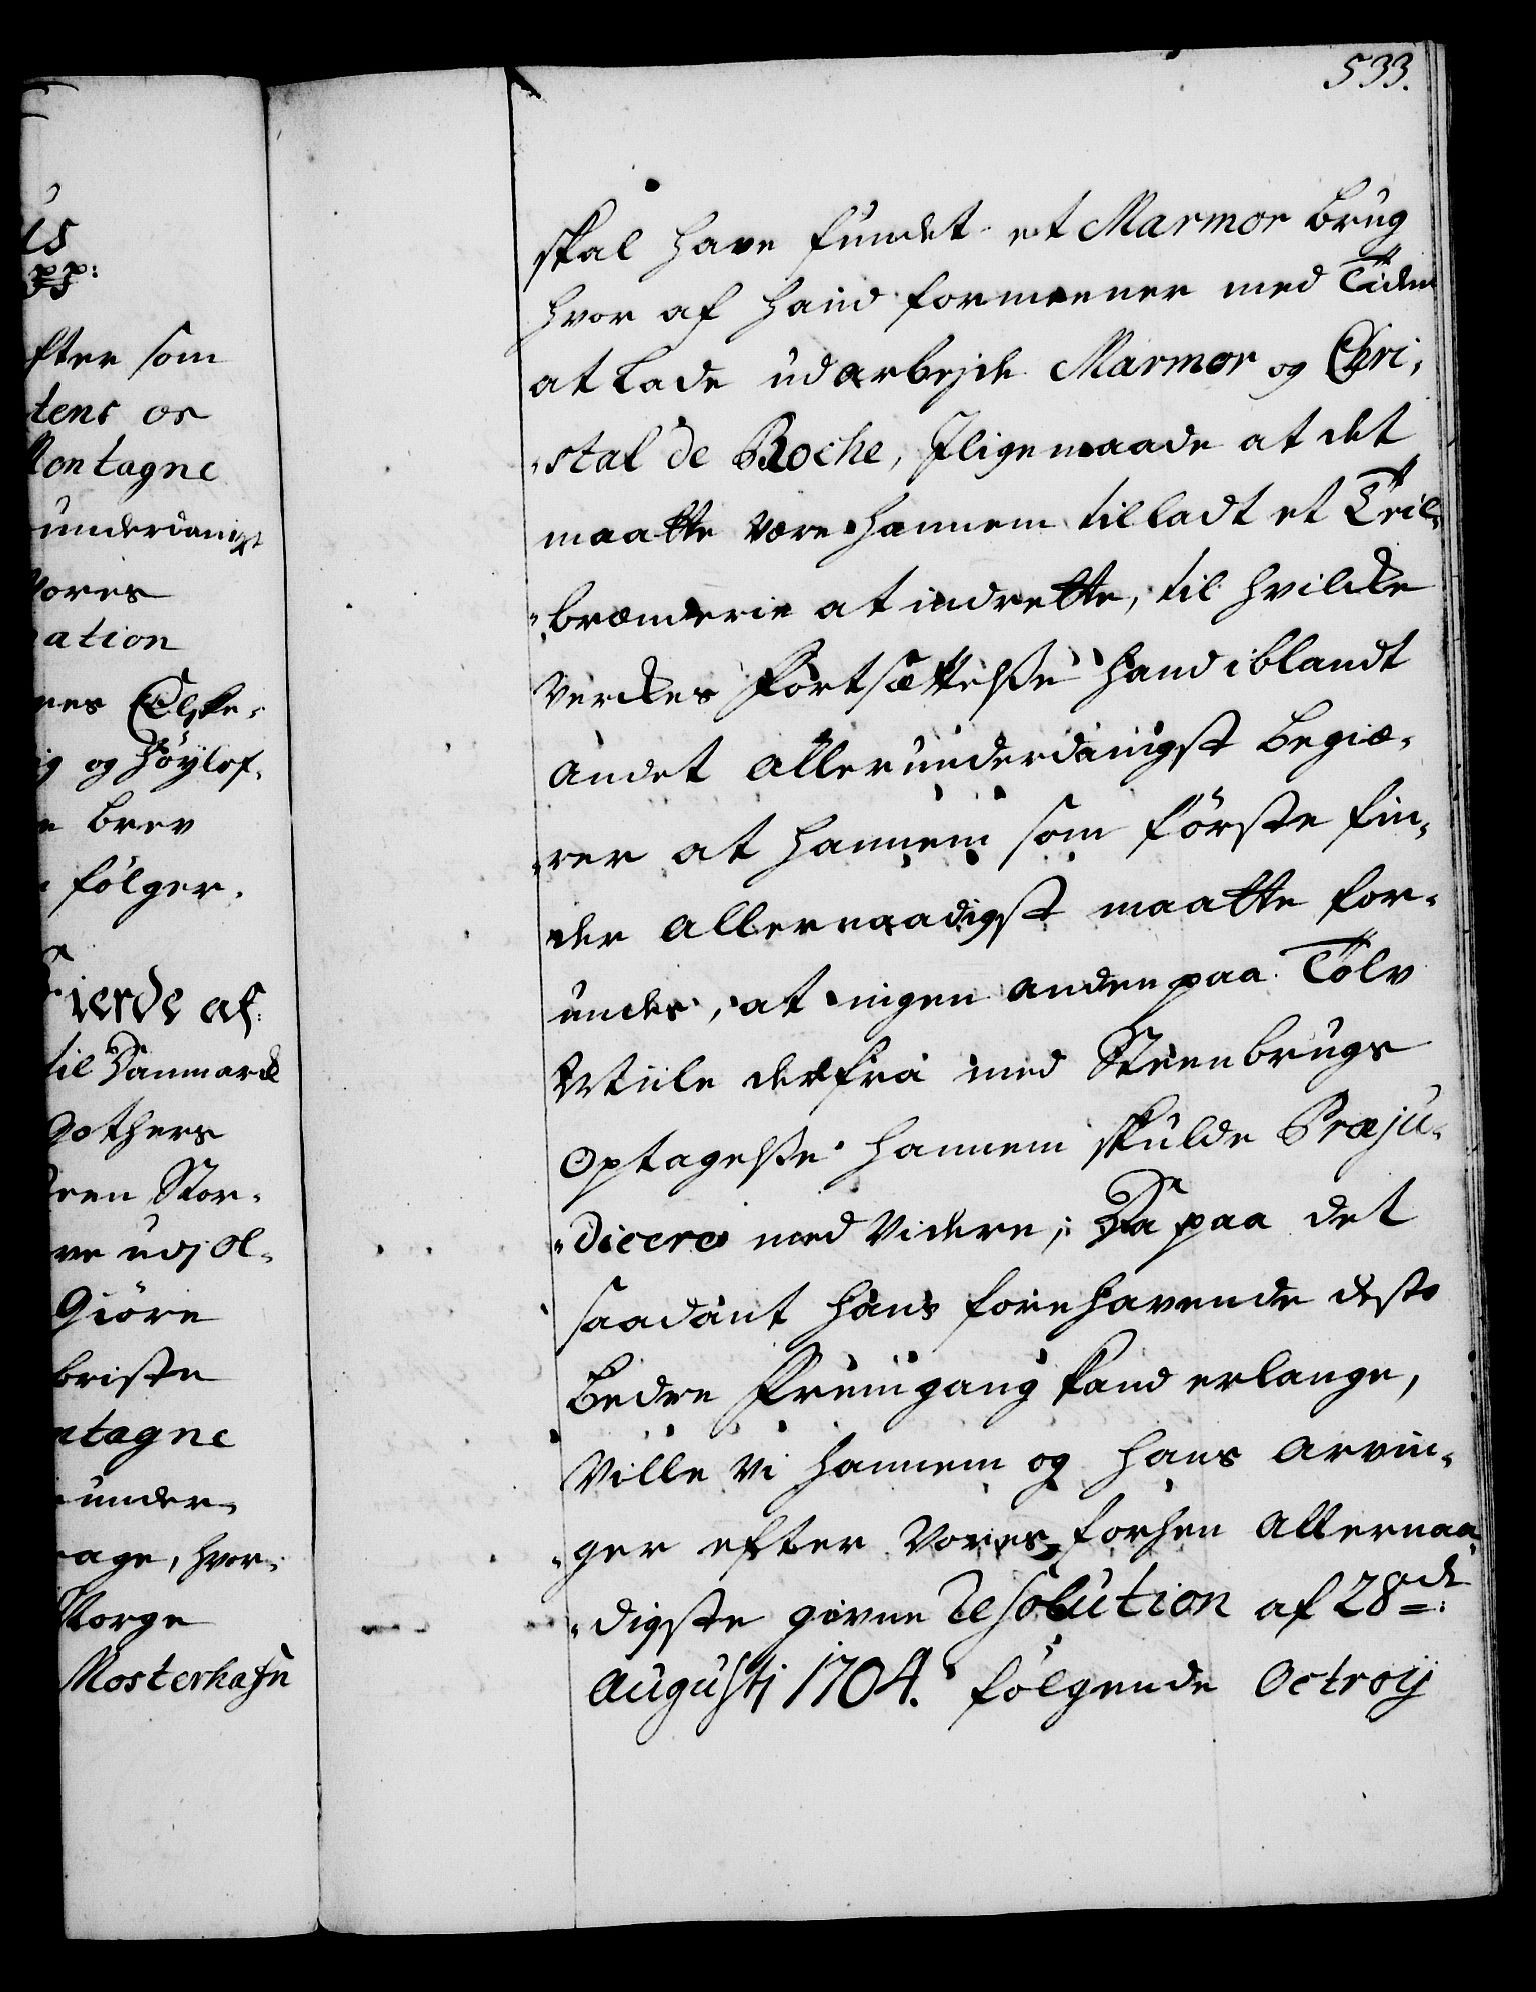 533.
skal have fundet et Marmor brug
hvor af hand formeener med Tiden
at lade udarbejde Marmor og Chri-
"stal de Roche, Iligemaade at det
maatte være hannem tilladt et Teil-
"brænderie at indrette, til hvilcke
Verckes Fortsættelsse hand iblandt
andet allerunderdanigst begiæ-
"rer at hannem som förste fin-
der allernaadigst maatte for-
undes, at ingen anden paa Tolv
Miile derfra med Steenbrugs
Optagelsse hannem skulde Præju-
"dicere med Videre; Da paa det
saadant hans forehavende desto
bedre Fremgang kand erlange,
Ville Vi hannem og hans arvin-
"ger efter Vores forhen allernaa-
"digste givne Resolution af 28de:
Augusti 1704. følgende Octroij
us
pp:
fter som
tens os
Montagne
underdanigst
Vores
ation
res Elske-
ig og Höylof-
e brev
fölger.
Fierde af
til Danmarck
Gothers
reen Stor-
ve udj Ol-
Giöre
briste
ntagne
under-
age, hvor-
Norge
Mosterhafn